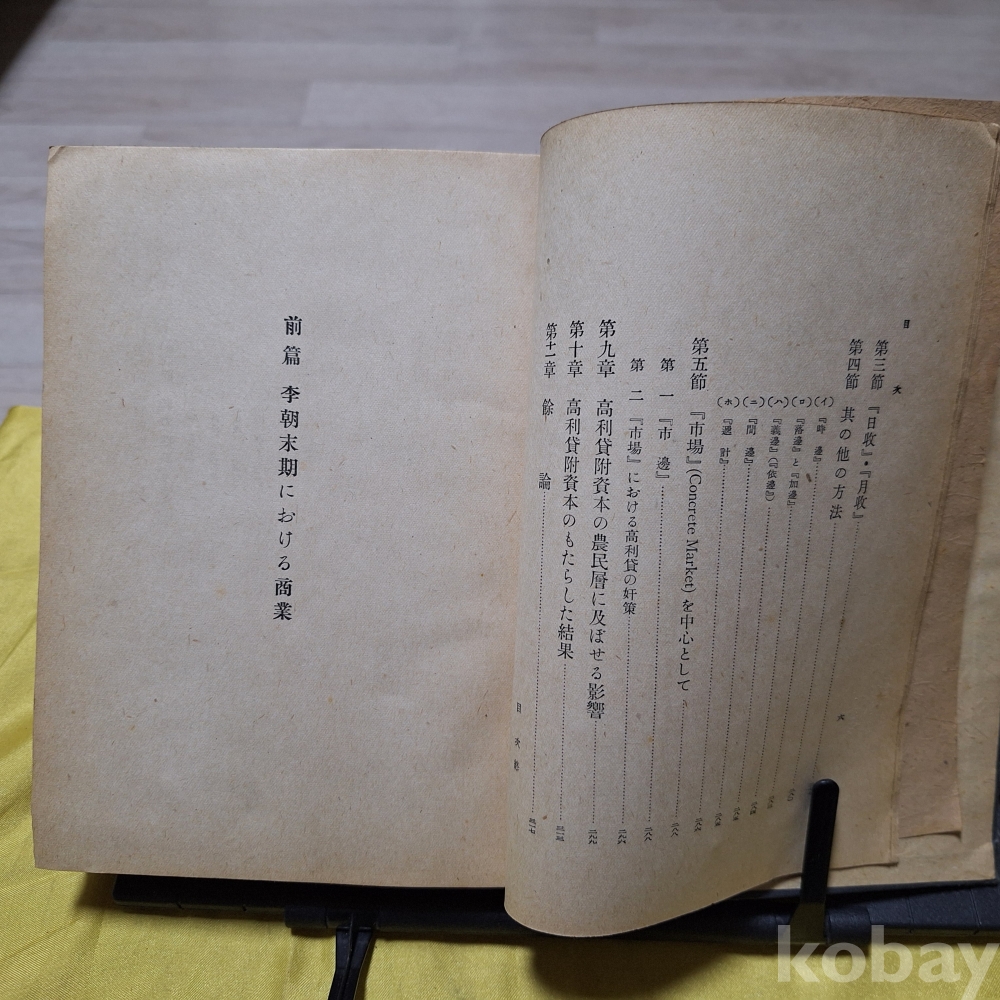 目次
六
第三節 『日收』・『月收』
第四節 其の他の方法
(イ)『時邊』
(ロ)『落邊』と『加邊』
(ハ)『義邊』(『依邊』)
(ニ)『間邊』
(ホ)『過計』
第五節 『市場』(Concrete Market)を中心として
第一 『市邊』
第二 『市場』における高利貸の奸策
第九章 高利貸附資本の農民層に及ぼせる影響
第十章 高利貸附資本のもたらした結果
第十一章 餘論
目次終
前篇 李朝末期における商業
kobay